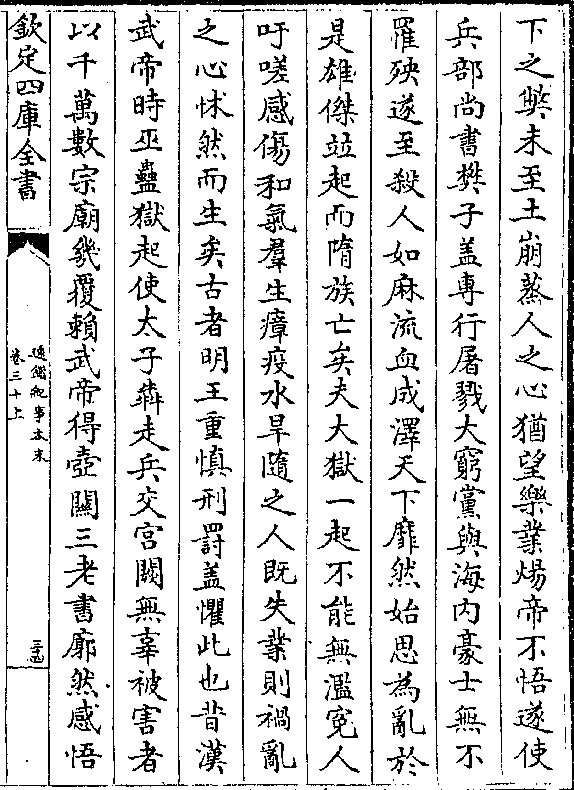 下之獘未至土崩蒸人之心猶望樂業煬帝不悟遂使
兵部尚書樊子盖專行屠戮大窮黨與海内豪士無不
罹殃遂至殺人如麻流血成澤天下靡然始思為亂於
是雄傑竝起而隋族亡矣夫大獄一起不能無濫寃人
吁嗟感傷和氣羣生瘴疫水旱隨之人既失業則禍亂
之心怵然而生矣古者明王重慎刑罸盖懼此也昔漢
武帝時巫蠱獄起使太子犇走兵交宫闕無辜被害者
以千萬數宗廟幾覆賴武帝得壺關三老書廓然感悟
欽定四庫全書
通鑑紀事本末
卷三十上
三十四